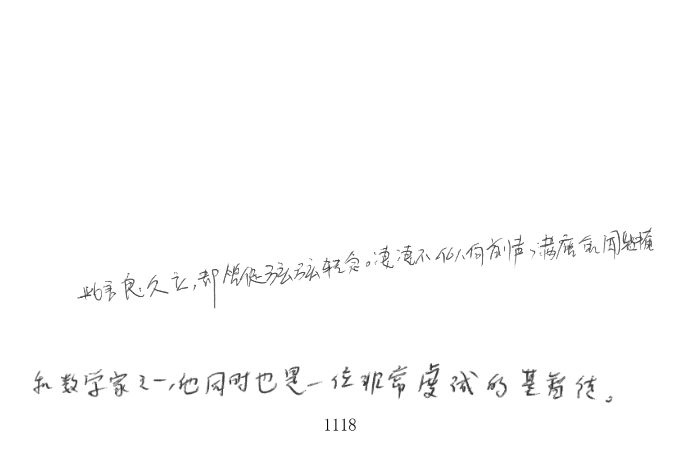 此言良久立,却坐促弦弦转急。凄凄不似向前声,满座重闻皆掩
和数学家之一,他同时也是一位非常虔诚的基督徒。
1118